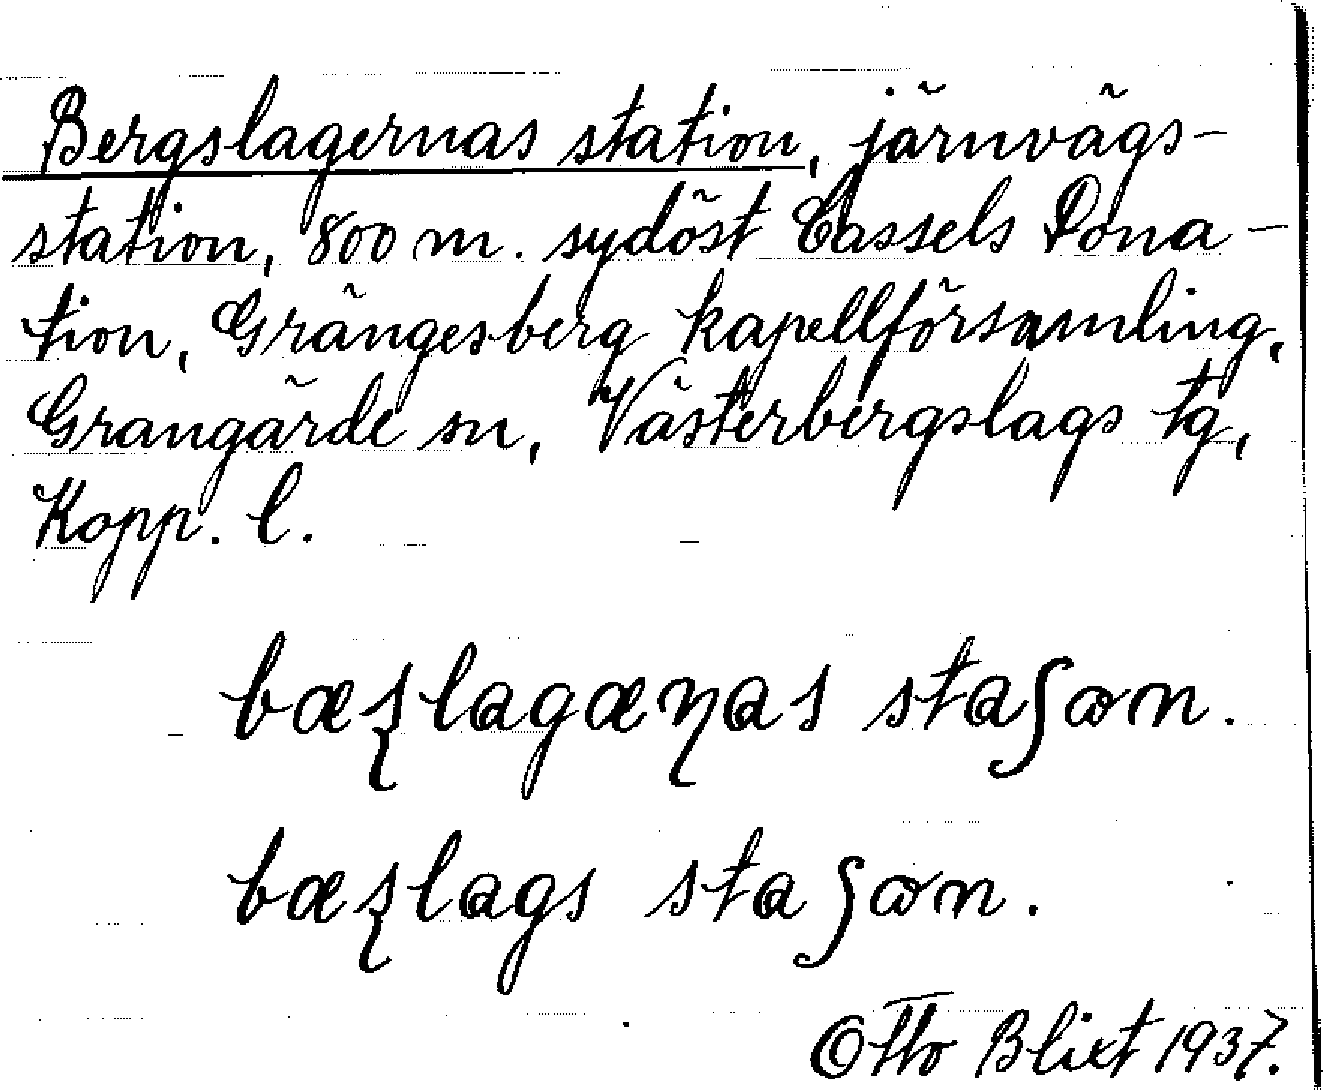 Bergslagernas station, järnvägs-
station, 800 m. sydöst Cassels Dona-
tion, Grängesberg kapellförsamling,
Grangärde sn, Västerbergslags tg,
Kopp. l.
bæʂlagæɳas staʃɷn.
bæʂlags staʃɷn.
Otto Blixt 1937.